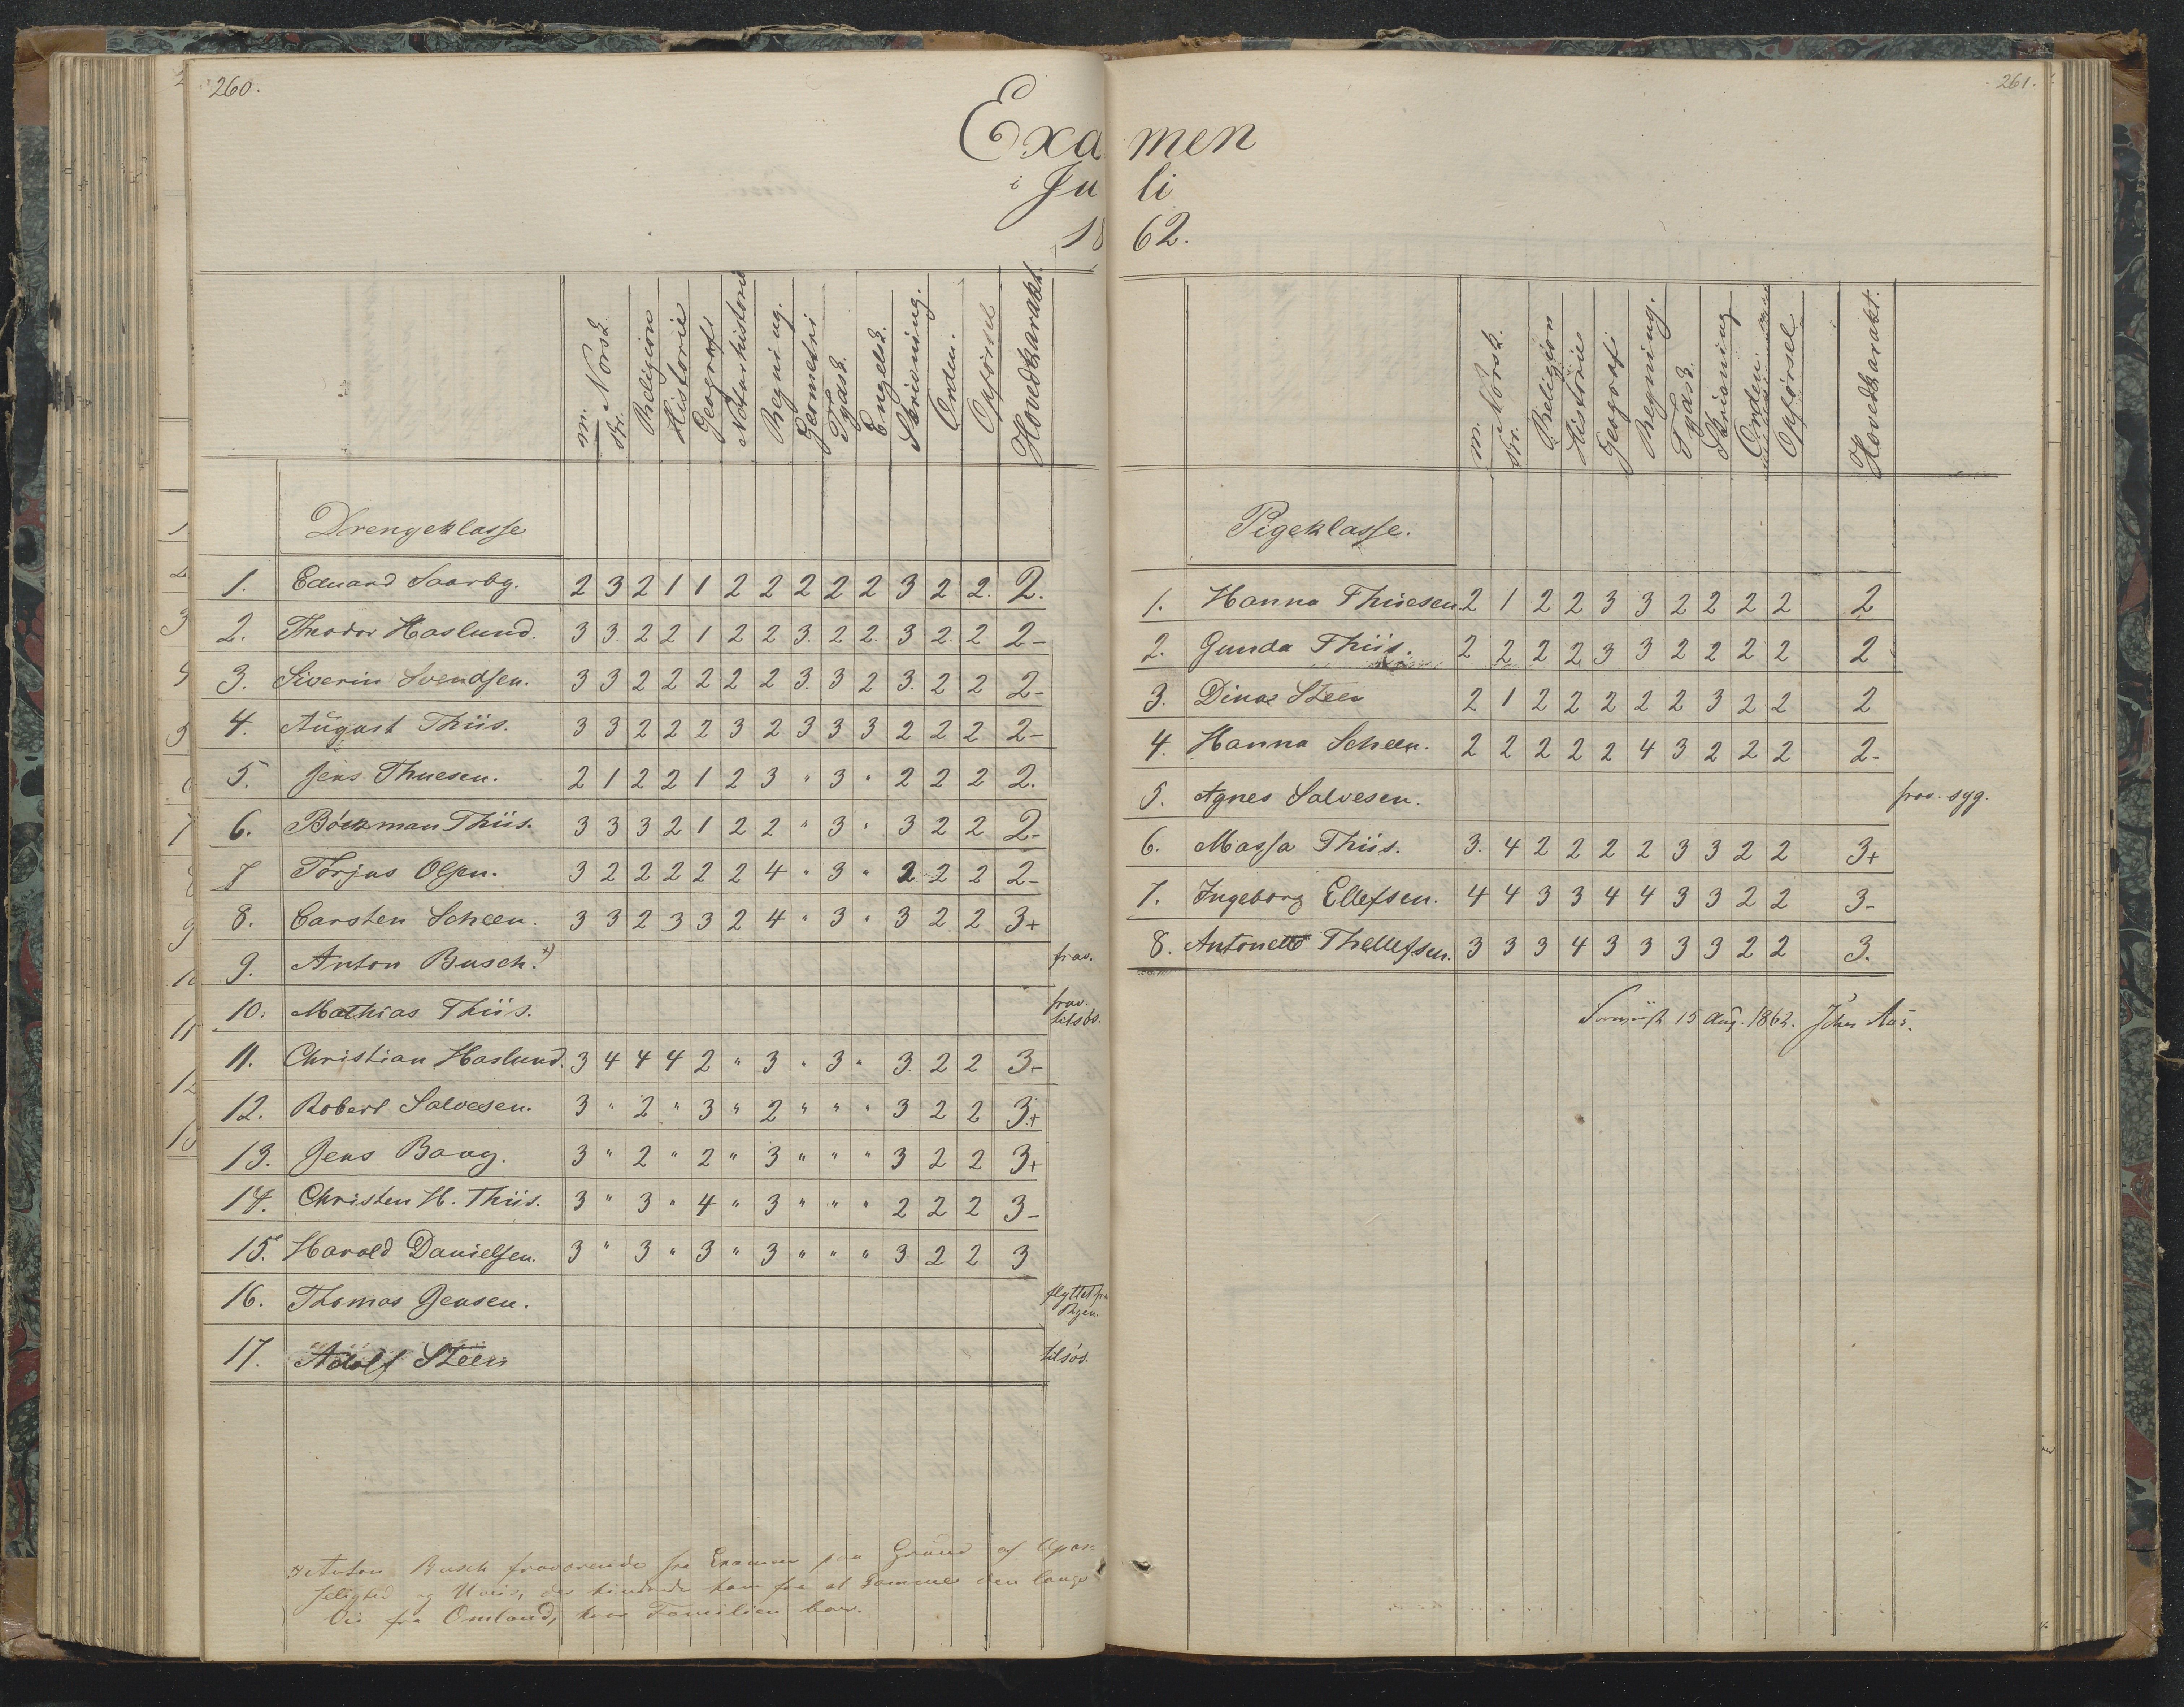 260.
Exa
i Ju
18
m. Norsk. skr. Religion Historie Geografi Naturhistorie Regning. Geometri Tydsk. Engelsk. Skrivning. Orden. Opförsel Hovedkarakt.
Drengeklasse
1. Eduard Saarby. 2 3 2 1 1 2 2 2 2 2 3 2 2. 2.
2. Theodor Haslund. 3 3. 2 2 1 2 2 3. 2 2. 3 2. 2 2-
3. Siverin Svendsen. 3 3 2 2 2 2 2 3. 3 2 3. 2 2 2-
4. August Thiis. 3 3 2 2 2 3 2 3 3 3 2 2 2 2-
5. Jens Thuesen. 2 1 2 2 1 2 3 " 3 " 2 2 2 2.
6. Böckman Thiis. 3 3 3 2 1 2 2 " 3 " 3 2 2 2-
7 Torjus Olsen. 3 2 2 2 2 2 4 " 3 " 2 2 2 2-
8. Carsten Scheen. 3 3 2 3 3 2 4 " 3 " 3 2 2 3+
9. Anton Busch.*) frav.
10. Mathias Thiis. frav. tilsøs.
11. Christian Haslund. 3 4 4 4 2 " 3 " 3 " 3. 2 2 3-
12. Robert Salvesen. 3 " 2 " 3 " 2 " " " 3 2 2 3+
13. Jens Baug. 3 " 2 " 2 " 3 " " " 3 2 2 3+
14. Christen H. Thiis. 3 " 3 " 4 " 3 " " " 2 2 2 3-
15. Harald Danielsen. 3 " 3 " 3 " 3 " " " 3. 2 2 3
16. Thomas Jensen. flyttet fra Byen.
17. Adolf Steen tilsøs.
*) Anton Busch fraværende fra Examen paa Grund af Upas-
selighed og Uveir, der hindrede ham fra at komme den lange
Vei fra Omland, hvor Familien boer.
261.
men
li
62.
m. Norsk. skr. Religion Historie Geografi Regning. Tydsk. Skrivning Orden Opförsel Hovedkarakt.
Pigeklasse.
1. Hanna Thuesen. 2 1 2 2 3 3 2 2 2 2 2
2. Gunda Thiis. 2 2 2 2 3 3 2 2 2 2 2
3. Dina Steen 2 1 2 2 2 2 2 3 2 2 2
4. Hanna Scheen. 2 2 2 2 2 4 3 2 2 2 2-
5. Agnes Salvesen. frav. syg.
6. Massa Thiis. 3. 4 2 2 2 2 3 3 2 2 3+
7. Ingeborg Ellefsen. 4 4 3 3 4 4 3 3 2 2 3-
8. Antonette Thellefsen. 3 3 3 4 3 3 3 3 2 2 3.
15 Aug. 1862. John Aas.